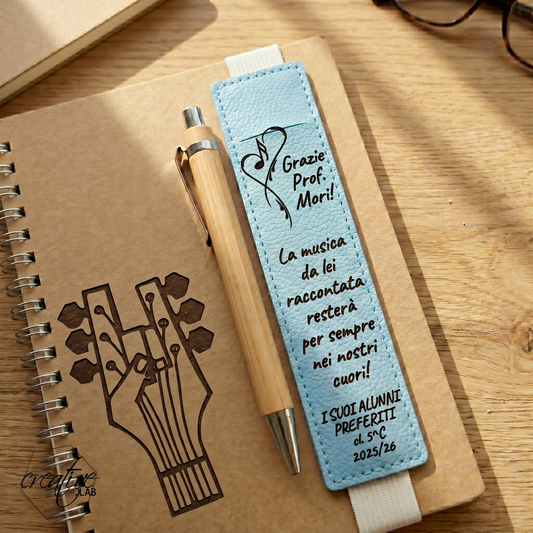 Grazie
Prof.
Mori!
La musica
da lei
raccontata
resterà
per sempre
nei nostri
cuori!
I SUOI ALUNNI
PREFERITI
cl. 5^C
2025/26
creative
LAB